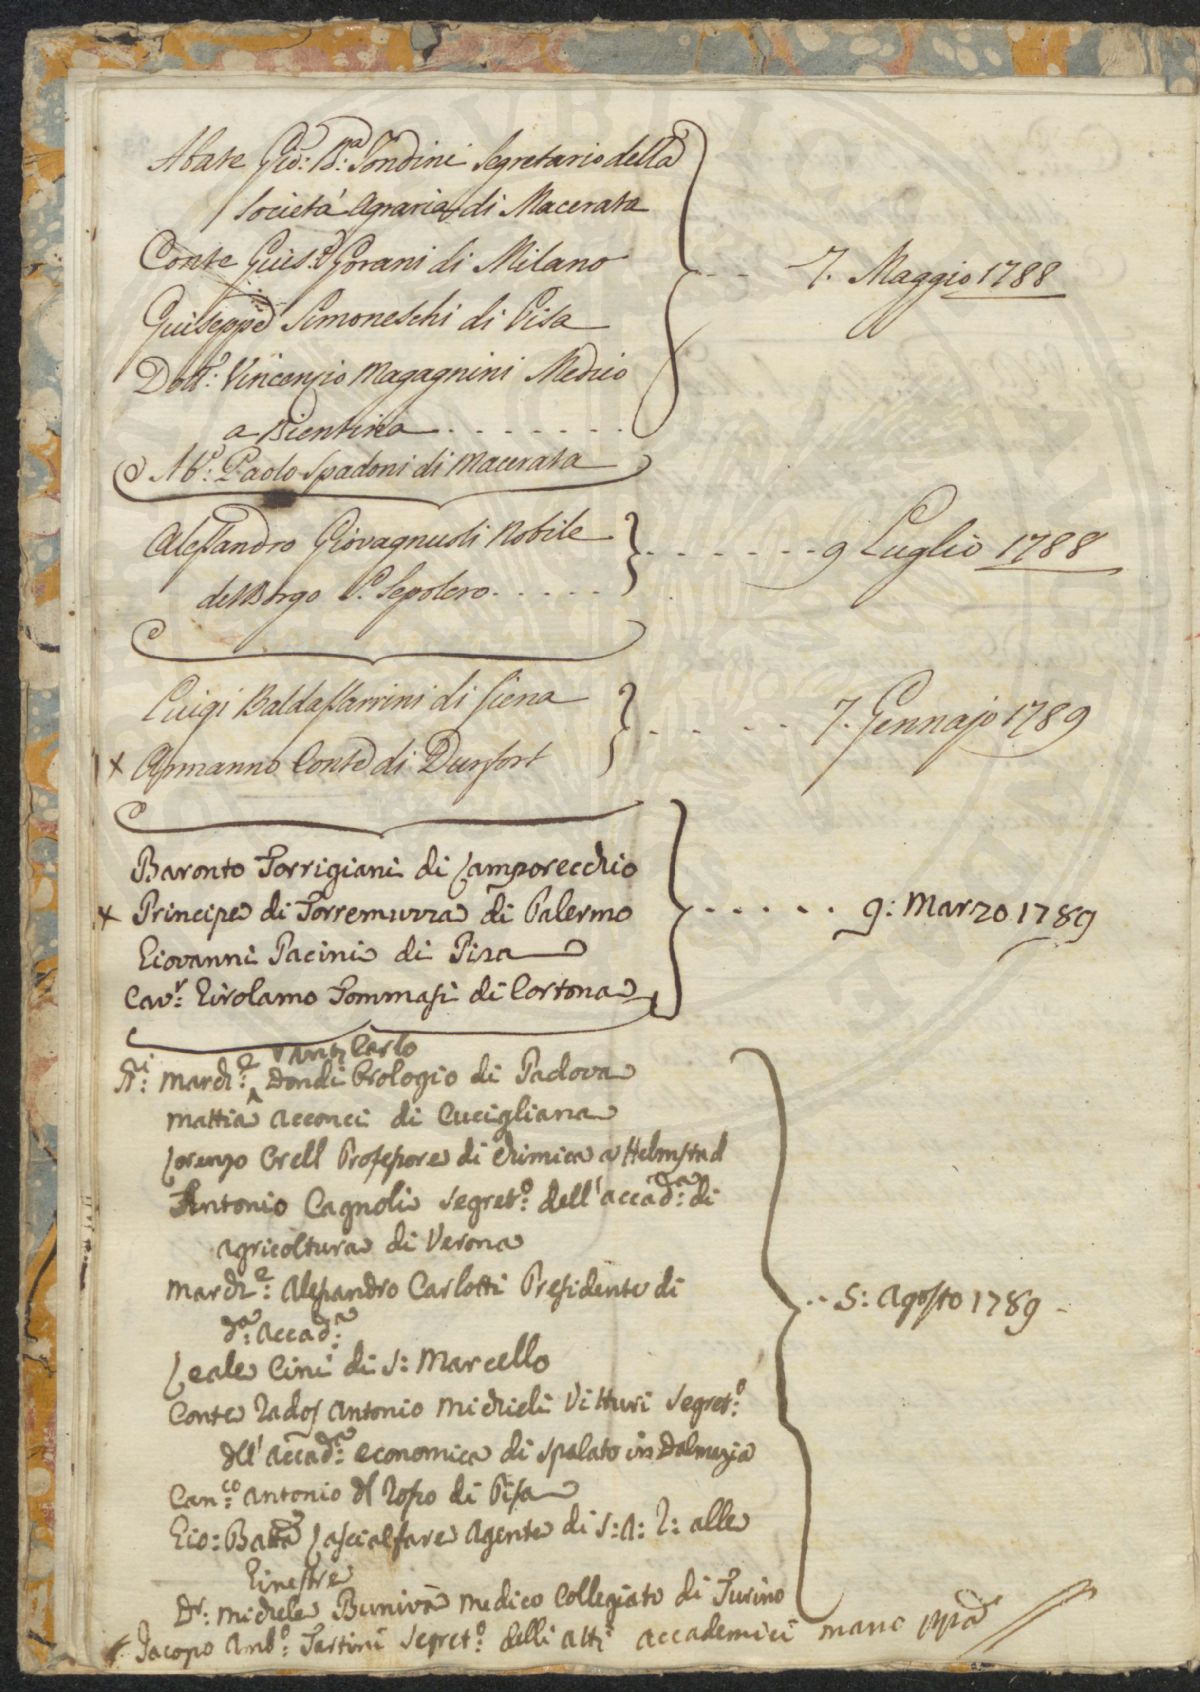 Abate Gio: B:ta Tondini Segretario della
Società Agraria di Macerata
Conte Gius:e Gorani di Milano
7. Maggio 1788
Giuseppe Simoneschi di Pisa
Dott:r Vincenzio Magagnini Medico
a Bientina . . . . . . .
Ab:e Paolo Spadoni di Macerata
Alessandro Giovagnuoli Nobile
. . . . . . . 9 Luglio 1788
del Borgo S. Sepolcro . . . . .
Luigi Baldassarrini di Siena
. . . . . 7. Gennajo 1789
x Armanno Conte di Durfort
Baronto Torrigiani di Lamporecchio
x Principe di Torremuzza di Palermo
. . . . . . 9: Marzo 1789
Giovanni Pacini di Pisa
Cav:r Girolamo Tommasi di Cortona
Carlo
March:e Dondi Orologio di Padova
Mattia Acconci di Cucigliana
Lorenzo Crell Professore di Chimica a Helmstad
Antonio Cagnoli Segret:o dell'Accad:a di
Agricoltura di Verona
March:e Alessandro Carlotti Presidente di
d:a Accad:a
. . 5: Agosto 1789 -
Leale Cini di S: Marcello
Conte Rados Antonio Michieli Vitturi Segret:o
dell'Accad:a economica di Spalato in Dalmazia
Can:co Antonio del Rosso di Pisa
Gio: Batta Lascialfare Agente di S: A: R: alle
Ginestre
Dr: Michele Buniva Medico Collegiato di Turino
Jacopo Amb:o Tartini Segret:o delli Atti Accademici mano ppa